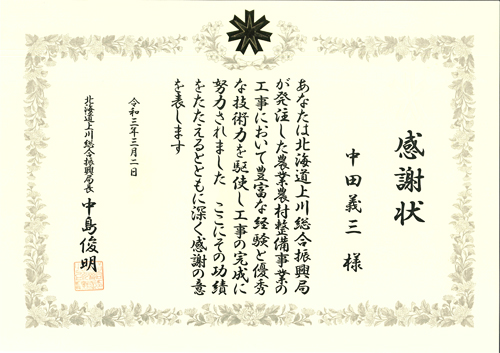 感謝状
中田義三 様
あなたは北海道上川総合振興局
が発注した農業農村整備事業の
工事において豊富な経験と優秀
な技術力を駆使し工事の完成に
努力されました ここにその功績
をたたえるとともに深く感謝の意
を表します
令和三年三月二日
北海道上川総合振興局長 中島俊明